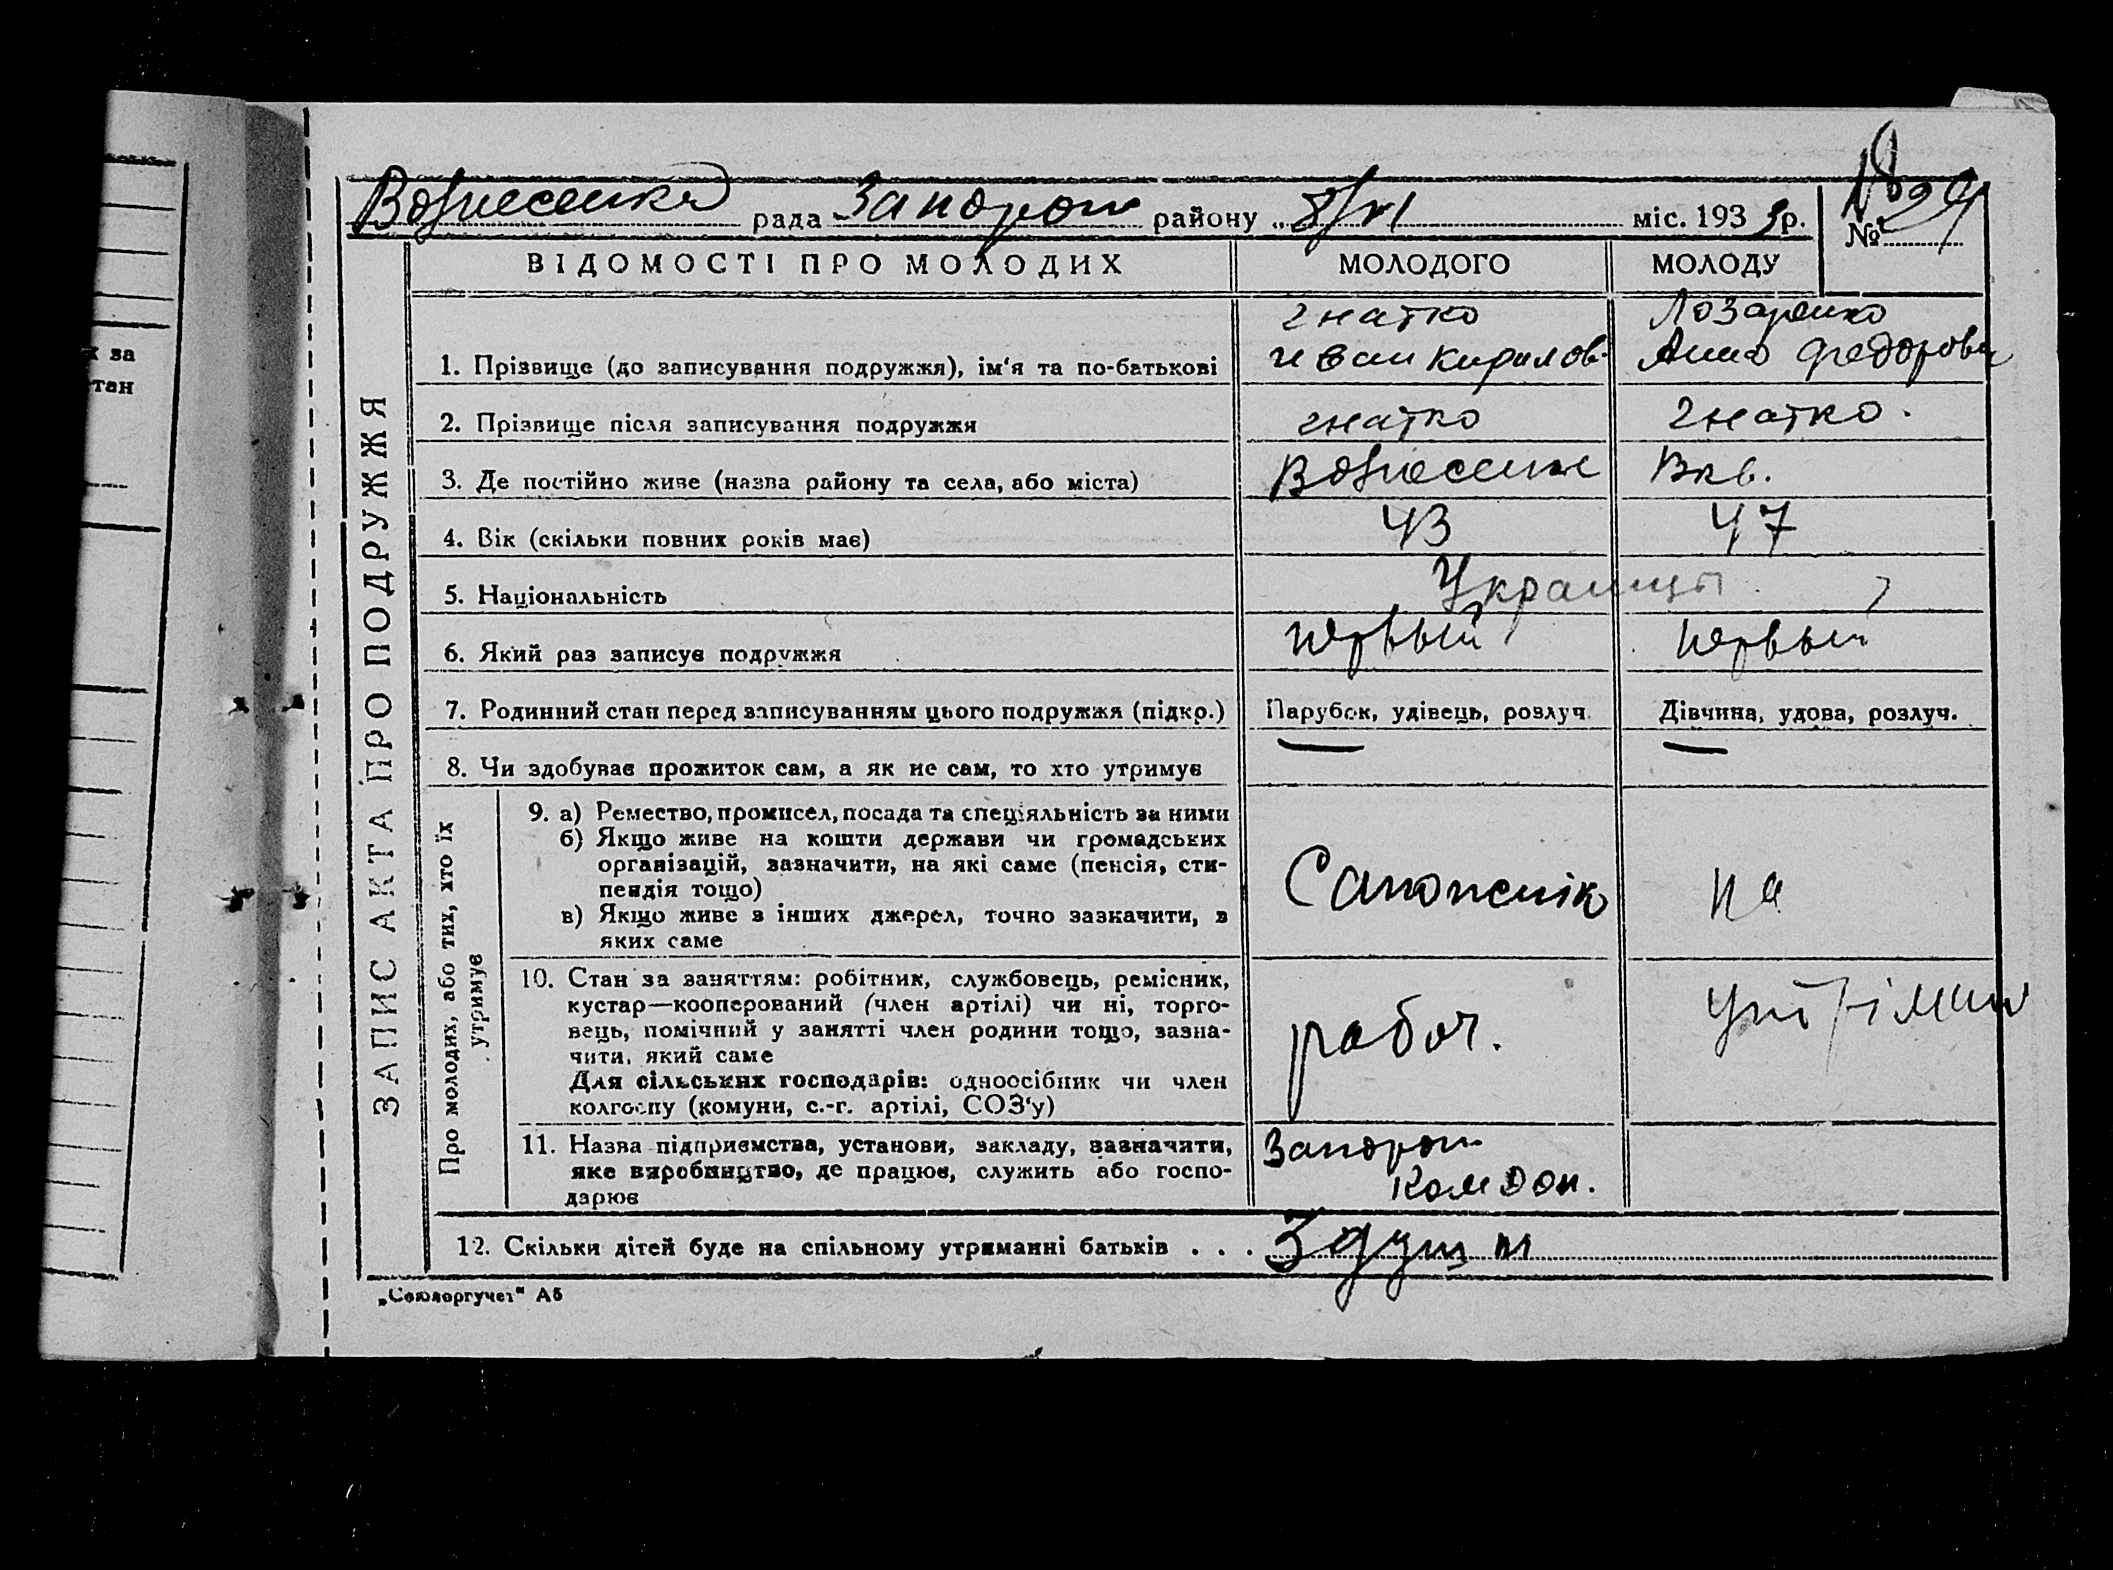 х за
тан
Вознесенка рада Запорож району „ 8/VI міс. 1933 р.
№ 29
ЗАПИС АКТА ПРО ПОДРУЖЖЯ
ВІДОМОСТІ ПРО МОЛОДИХ МОЛОДОГО МОЛОДУ
гнатко Лозаренко
1. Прізвище (до записування подружжя), ім‘я та по-батькові иван Кирилов. Анна Федоровн
2. Прізвище після записування подружжя гнатко гнатко.
3. Де постійно живе (назва району та села, або міста) Вознесенке Вкв.
4. Вік (скільки повних років має) 43 47
5. Національність Украинцы
6. Який раз записує подружжя первый первый
7. Родинний стан перед записуванням цього подружжя (підкр.) Парубок, удівець, розлуч. Дівчина, удова, розлуч.
8. Чи здобуває прожиток сам, а як не сам, то хто утримує
Про молодих, або тих, хто їх утримує
9. а) Ремество, промисел, посада та спеціяльність за ними
б) Якщо живе на кошти держави чи громадських
організацій, зазначити, на які саме (пенсія, сти-
пендія тощо)
в) Якщо живе з інших джерел, точно зазначити, з
яких саме
Сапожнік на
10. Стан за заняттям: робітник, службовець, ремісник,
кустар—кооперований (член артілі) чи ні, торго-
вець, помічний у занятті член родини тощо, зазна-
чити, який саме
Для сільських господарів: одноосібник чи член
колгоспу (комуни, с.-г. артілі, СОЗ‘у)
рабоч.
11. Назва підприємства, установи, закладу, зазначити,
яке виробництво, де працює, служить або госпо-
дарює
Запорож
12. Скільки дітей буде на спільному утриманні батьків . . . 3 душ
„Союзоргучет“ А5